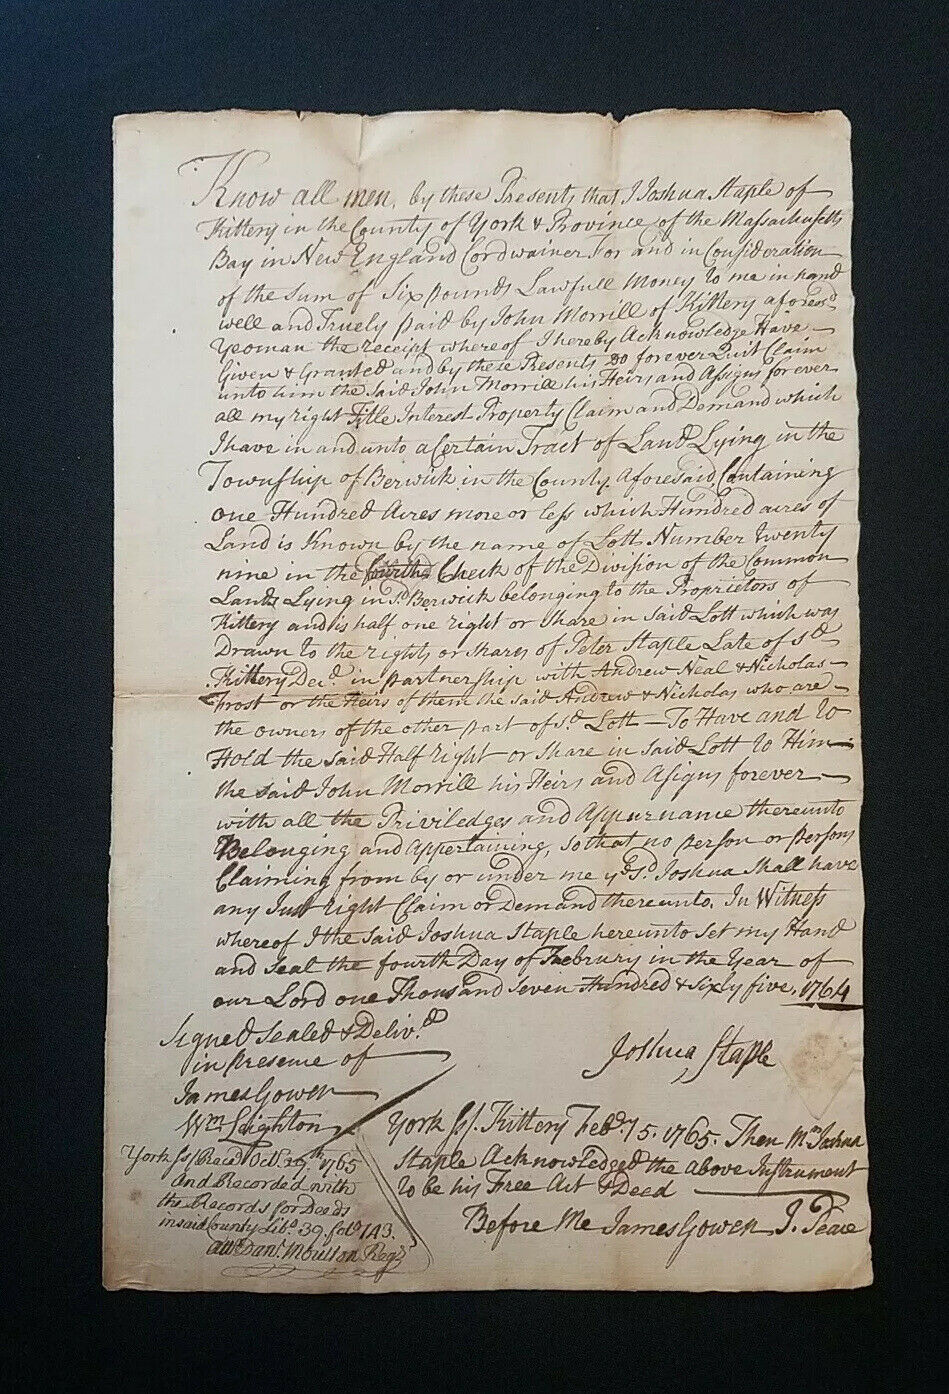 Know all men, by these Presents that I Joshua Staple of
Kittery in the County of York & Province of the Massachusetts
Bay in New England Cordwainer for and in Consideration
of the Sum of Six pounds Lawfull Money to me in hand
well and Truely paid by John Morrill of Kittery aforesd.
Yeoman the receipt whereof I hereby Acknowledge Have
Given & Granted and by these Presents Do forever Quit Claim
unto him the said John Morrill his Heirs and Asigns for ever
all my right Title Interest Property Claim and Demand which
I have in and unto a Certain Tract of Land Lying in the
Township of Berwick in the County aforesaid Containing
one Hundred Acres more or less which Hundred acres of
Land is Known by the name of Lott Number twenty
nine in the fourth Check of the Division of the Common
Lands Lying in sd. Berwick belonging to the Proprietors of
Kittery and is half one right or share in said Lott which was
Drawn to the rights or shares of Peter Staple Late of sd.
Kittery Decd. in partnership with Andrew Neal & Nicholas
Frost or the Heirs of them the said Andrew & Nicholas who are
the owners of the other part of sd. Lott — To Have and to
Hold the said Half right or share in said Lott to Him
the said John Morrill his Heirs and Asigns forever
with all the Priviledges and Appurname thereunto
Belonging and appertaining, so that no person or persons
Claiming from by or under me ye sd. Joshua Shall have
any Just right Claim or Demand thereunto. In Witness
whereof I the said Joshua Staple hereunto Set my Hand
and Seal the fourth Day of Februry in the Year of
our Lord one Thousand Seven Hundred & Sixty five. 1764
Signed Sealed & Delivd.
in presence of
James Gowen
Wm Leighton
Joshua Staple
York ss/. Kittery Febr. 15. 1765. Then Mr. Joshua
Staple Acknowledged the above Instrument
to be his Free Act & Deed
Before Me James Gowen J. Peace
York ss/ Recd. Octr. 29th 1765
and Recorded with
the Records for Deeds
in said County Libo. 39. folo. 143.
attr. Danl. Moulton Regr.